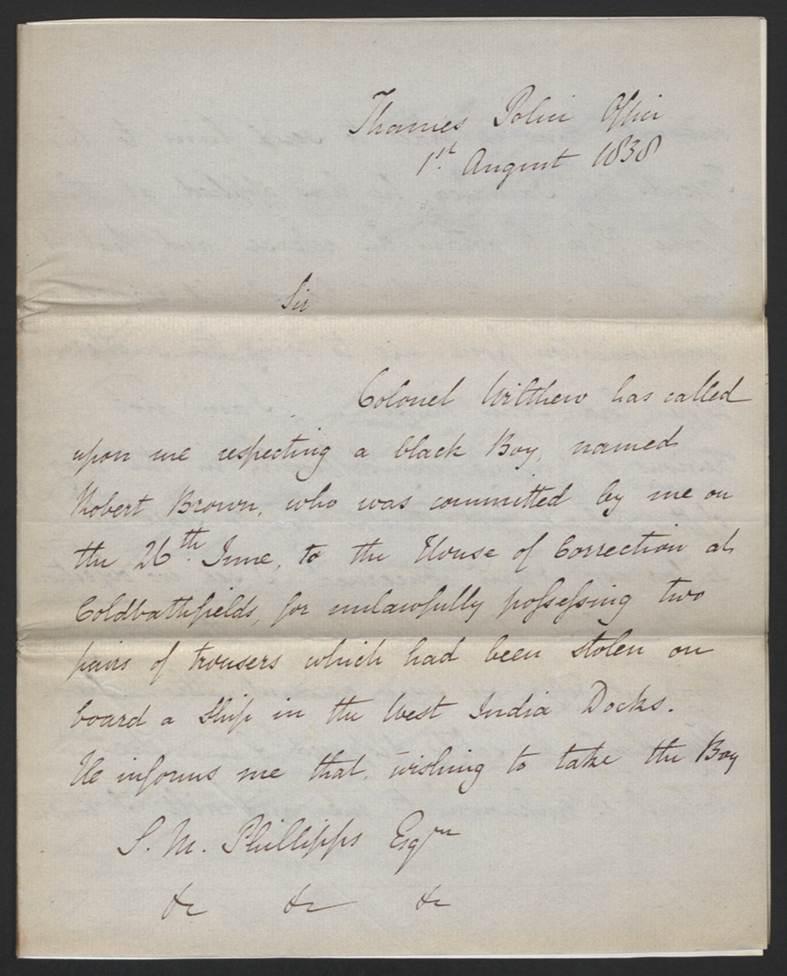 Thames Police Office
1st August 1838
Sir
Colonel Wilthew has called
upon me respecting a black Boy, named
Robert Brown, who was committed by me on
the 26th June, to the House of Correction at
Coldbathfields, for unlawfully possessing two
pairs of trousers which had been stolen on
board a Ship in the West India Docks.
He informs me that, wishing to take the Boy
S. M. Phillipps Esqre
&c &c &c